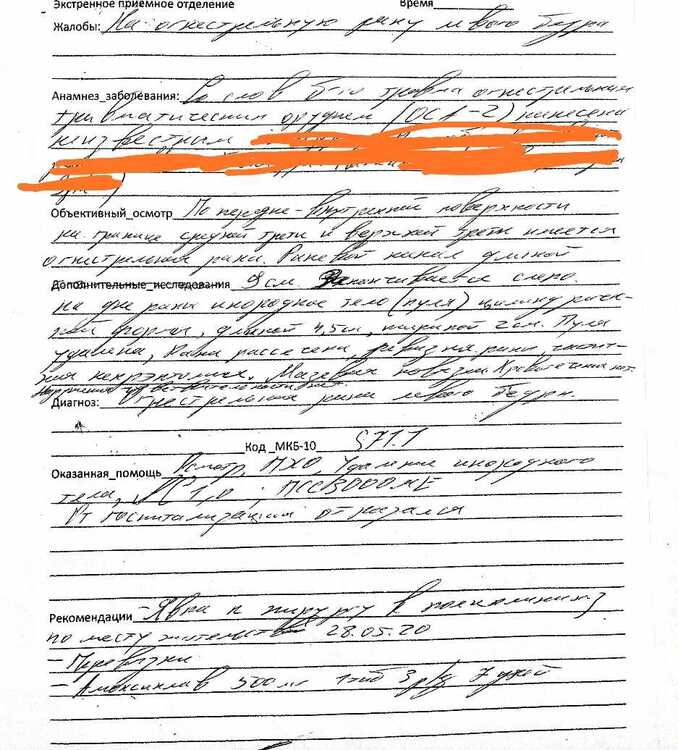 Экстренное приемное отделение Время
Жалобы: На огнестрельную рану левого бедра
Анамнез_заболевания: Со слов б-го травма огнестрельным
травматическим оружием (ОСА-2) нанесена
неизвестным
Объективный_осмотр По передне-внутренней поверхности
на границе средней трети и верхней трети имеется
огнестрельная рана. Раневой канал длиной
Дополнительные_исследования 9 см заканчивается слепо.
на дне раны инородное тело (пуля) цилиндричес-
кой формы, длиной 4,5см, шириной 2см. Пуля
удалена, Рана рассечена, ревизия раны,
некрэктомия. Мазевая повязка Кровотечения нет.
Диагноз: Огнестрельная рана левого бедра.
Код _МКБ-10 S71.1
Оказанная_помощь Осмотр, ПХО, Удаление инородного
тела, АС 1,0 ПСС 3000 МЕ
От госпитализации отказался
Рекомендации - Явка к хирургу в поликлинику
по месту жительства 28.05.20
- Перевязки
- Амоксиклав 500 мг 1таб 3 р/д 7 дней